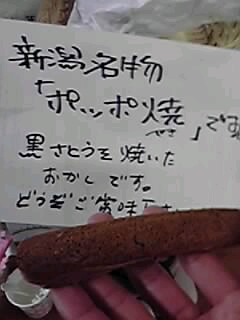 新潟名物
「ポッポ焼」です
やき
黒さとうを焼いた
おかしです。
どうぞご賞味下さい